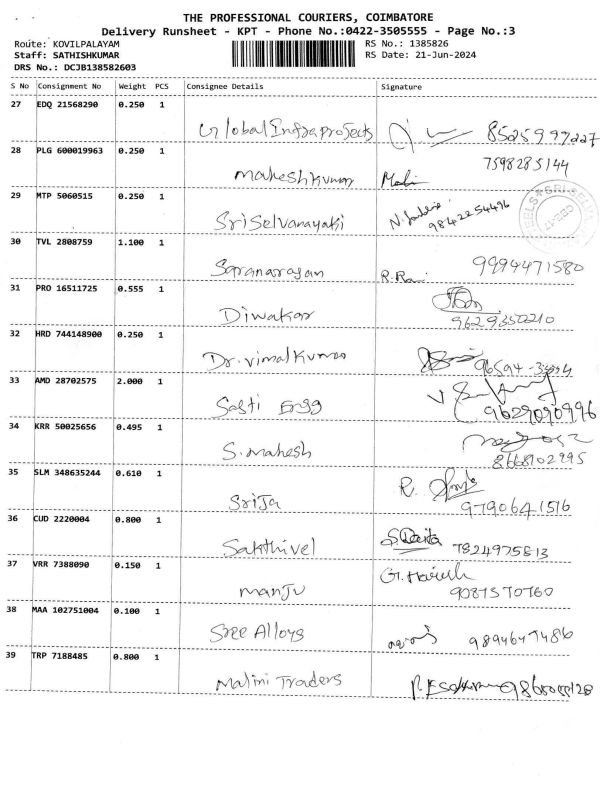 THE PROFESSIONAL COURIERS, COIMBATORE
Delivery Runsheet - KPT - Phone No.:0422-3505555 - Page No.:3
Route: KOVILPALAYAM RS No.: 1385826
Staff: SATHISHKUMAR RS Date: 21-Jun-2024
DRS No.: DCJB138582603
S No Consignment No Weight PCS Consignee Details Signature
27 EDQ 21568290 0.250 1
Global Infra projects 8525997227
28 PLG 600019963 0.250 1
maheshkumar 7598285144
29 MTP 5060515 0.250 1
Sri Selvanayaki 9842254496
30 TVL 2808759 1.100 1
Saranarayan R. 9994471580
31 PRO 16511725 0.555 1
Diwakar 9629350210
32 HRD 744148900 0.250 1
Dr. vimal kumar
33 AMD 28702575 2.000 1
Sakti Engg 9629090996
34 KRR 50025656 0.495 1
S. mahesh 8668102995
35 SLM 348635244 0.610 1
SriJa R. 9790641516
36 CUD 2220004 0.800 1
Sakthivel 7824975813
37 VRR 7388090 0.150 1
manju 9087570760
38 MAA 102751004 0.100 1
Sree Alloys 9894647486
39 TRP 7188485 0.800 1
Malini Traders